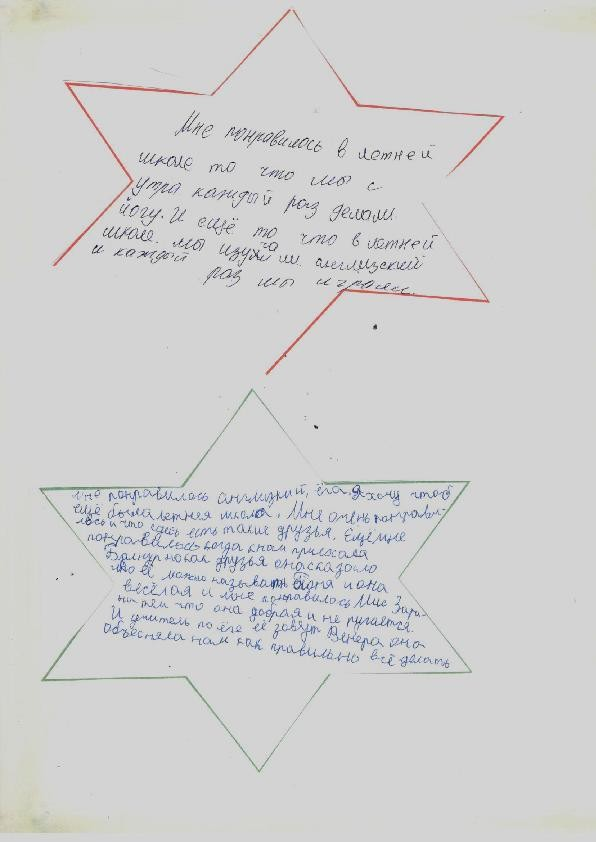 Мне понравилось в летней
школе то что мы с
утра каждый раз делали
йогу. И ещё то что в летней
школе мы изучали английский
и каждый
раз мы играли.
мне понравилось англизкий, ёга, я хочу чтоб
ещё была летняя школа. Мне очень понрави-
лось и что здесь есть такие друзья. Ещё мне
понравилось когда к нам приехала
друзья она сказала
что её можно называть Баня и она
весёлая и мне понравилось Мис Зари-
на тем что она добрая и не ругается.
И учитель по ёге её зовут Венера она
объесняла нам как правильно всё делать